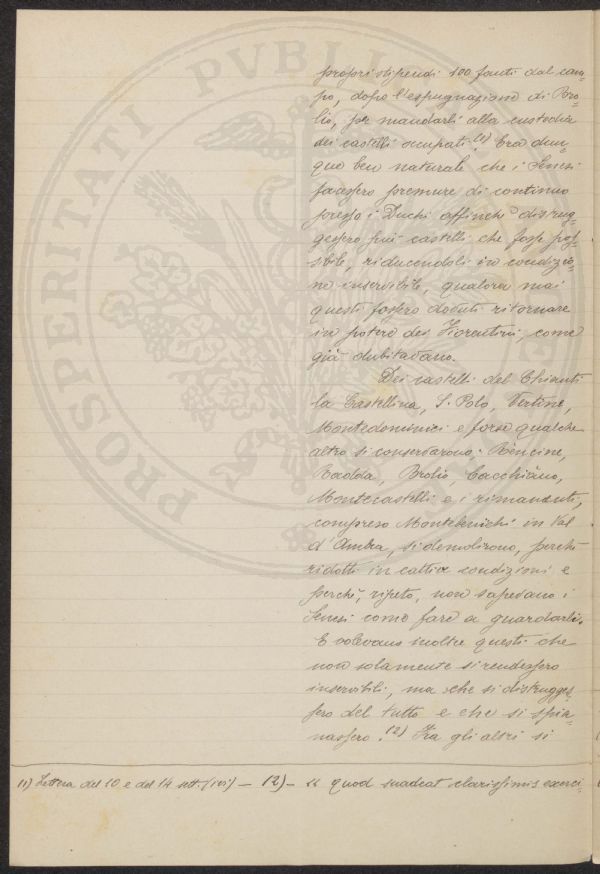 proprî stipendi 100 fanti dal cam-
po, dopo l'espugnazione di Bro-
lio, per mandarli alla custodia
dei castelli occupati.(11) Era dun-
que ben naturale che i Senesi
facessero premure di continuo
presso i Duchi affinchè distrug-
gessero più castelli che fosse pos-
sibile, riducendoli in condizio-
ne inservibile, qualora mai
questi fossero dovuti ritornare
in potere dei Fiorentini, come
già dubitavano.
Dei castelli del Chianti
la Castellina, S. Polo, Vertine,
Montedominici e forse qualche
altro si conservarono; Rèncine,
Radda, Brolio, Cacchiano,
Montecastelli e i rimanenti,
compreso Montebenichi in Val
d'Ambra, si demolirono, perchè
ridotti in cattive condizioni e
perchè, ripeto, non sapevano i
Senesi come fare a guardarli.
E volevano inoltre questi che
non solamente si rendessero
inservibili, ma che si distrugges-
sero del tutto e che si spia-
nassero.(12) Fra gli altri si
11) Lettera del 10 e del 14 sett. (ivi) — 12) — « quod suadeat clarissimis exerci-
PROSPERITATI PVBLICAE